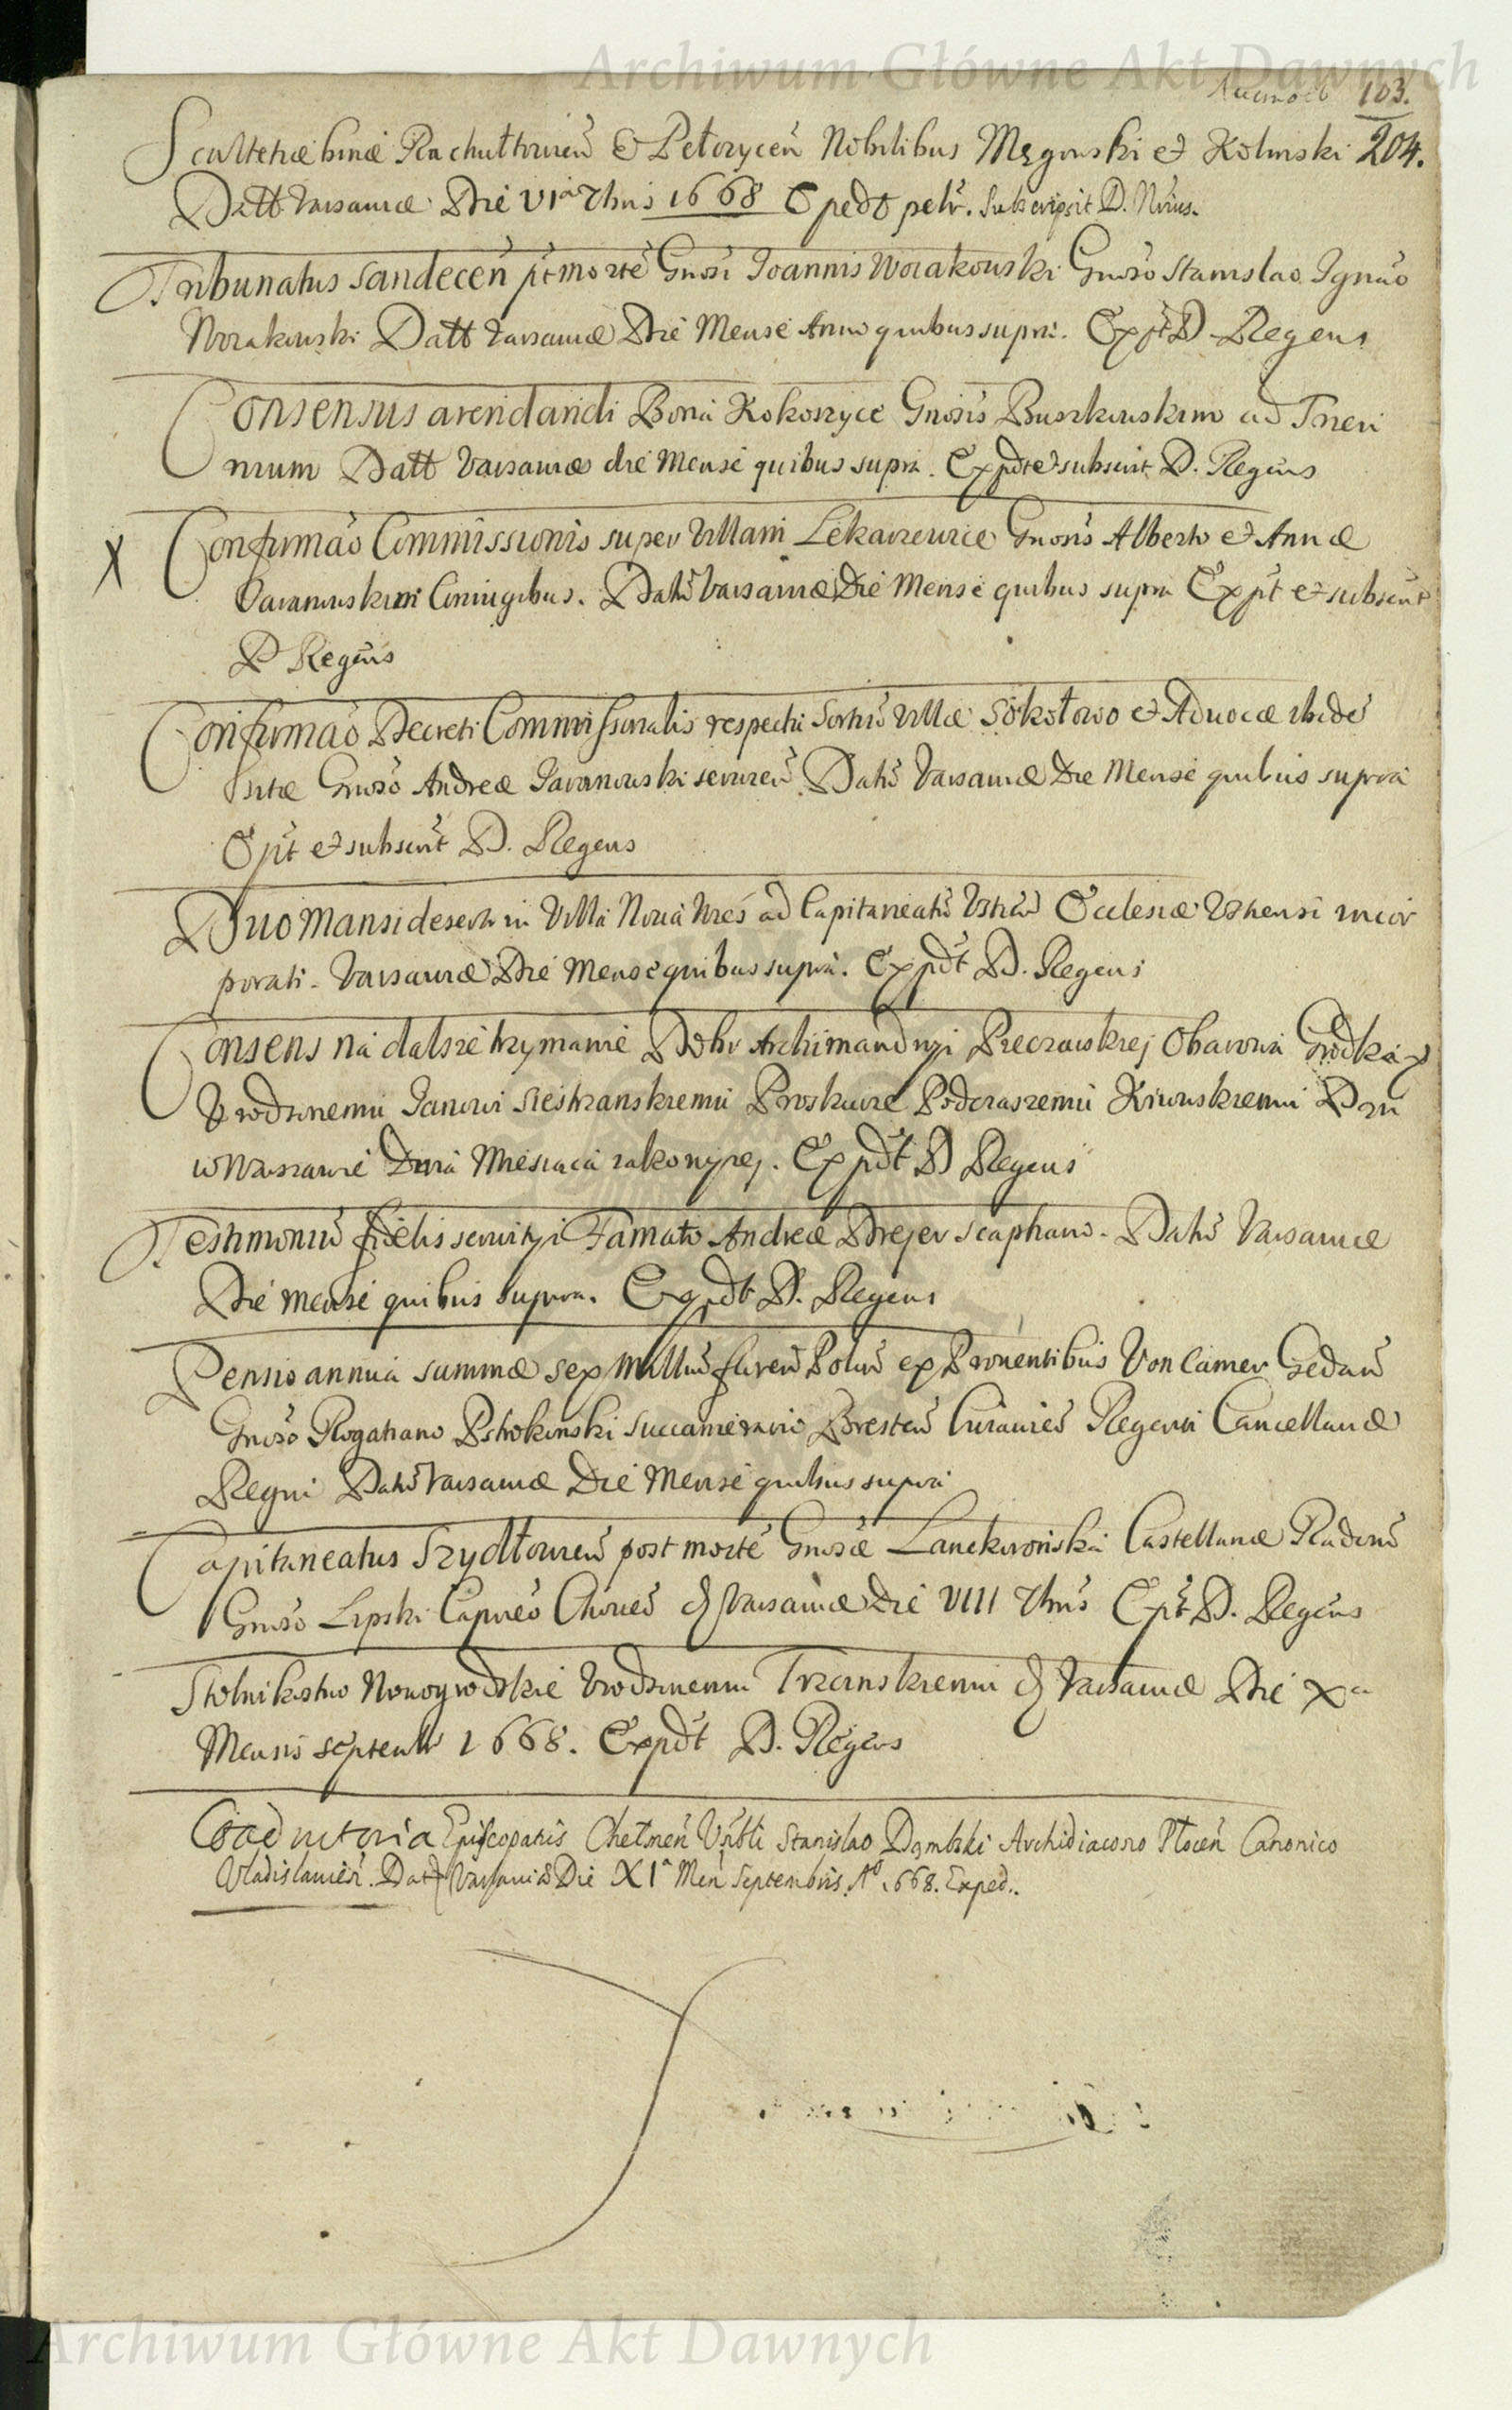 Archiwum Główne Akt Dawnych
103.
Scultetiæ binæ Rachuttowień & Petoryceń Nobilibus Męgowski et Kolinski 204.
Datt Varsaviæ Die VIa 7bris 1668 Subscripsit D. Nrius.
Tribunatus Sandeceń pt morté Gnosi Joannis Worakowski Gnoso Stanislao Ignáo
Worakowski Datt Varsaviæ Die Mense Anno quibus supra. Expt D. Regens
Consensus arendandi Bona Kokoszyce Gnosis Buszkowskim ad Trien
nium Datt Varsaviæ die Mense quibus supra. Expdt et subscrit D. Regens
X Confirmáo Commissionis super Villam Lekarzewice Gnosis Alberto et Annæ
Coniugibus. Datt Varsaviæ Die Mense quibus supra Expt et subscrit
D Regens
Confirmáo Decreti Commissionalis respectu Villæ Sokołowo et Advocæ ibidé
sitæ Gnoso Andreæ Datt Varsaviæ Die Mense quibus supra
Expt et subscrit D. Regens
Duo Mansi deserti in Villa Nova Wies ad Capitaneatú Ecclesiæ incor
porati. Varsaviæ Die Mense quibus supra. Expdt D. Regens
Consens na dalsze trzymanie Dobr Archimandryi Pieczarskiej Obarowa Grodka
Vrodzonemu Janowi Siestrzanskiemu Proskurze Podczaszemu Kiiowskiemu Dan
w Warszawie Dnia Miesiaca iako wyzej. Expdt D Regens
Testimoniú fidelis servityi Famato Andreæ Drejer scaphario. Datt Varsaviæ
Die mense quibus supra. Expdt D. Regens
Pensio annua summæ sex Milliú floreń Poloń ex Proventibus Von Camer Gedań
Gnoso Rogatiano Pstrokonski Succamerario Bresteń Cuiavień Regenti Cancellariæ
Regni Datt Varsaviæ Die Mense quibus supra
Capitaneatus Szydłowień post morté Gnosæ Lanckoronska Castellanæ Radoń
Gnoso Lipski Varsaviæ Die VIII 7bris Expt D. Regens
Stolnikostwo Nowogrodskie Vrodzonemu Trzcinskiemu Varsaviæ Die Xa
Mensis septembr 1668. Expdt D. Regens
Coadiutoria Episcopatus Chelmeń Vrbli Stanislao Dąmbski Archidiacono Płoceń Canonico
Vladislavień. Datt Varsaviæ Die XIa Meń Septembris. Ao 1668. Exped.
Archiwum Główne Akt Dawnych